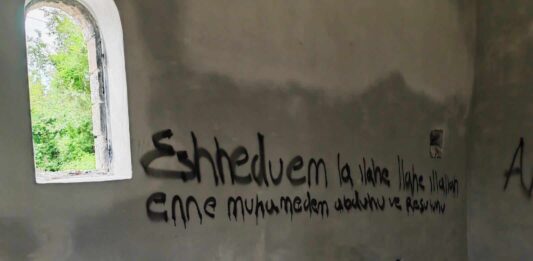 Eshheduem la ilahe llahe illallah
enne muhamedem abduhu ve Resuluhu
A